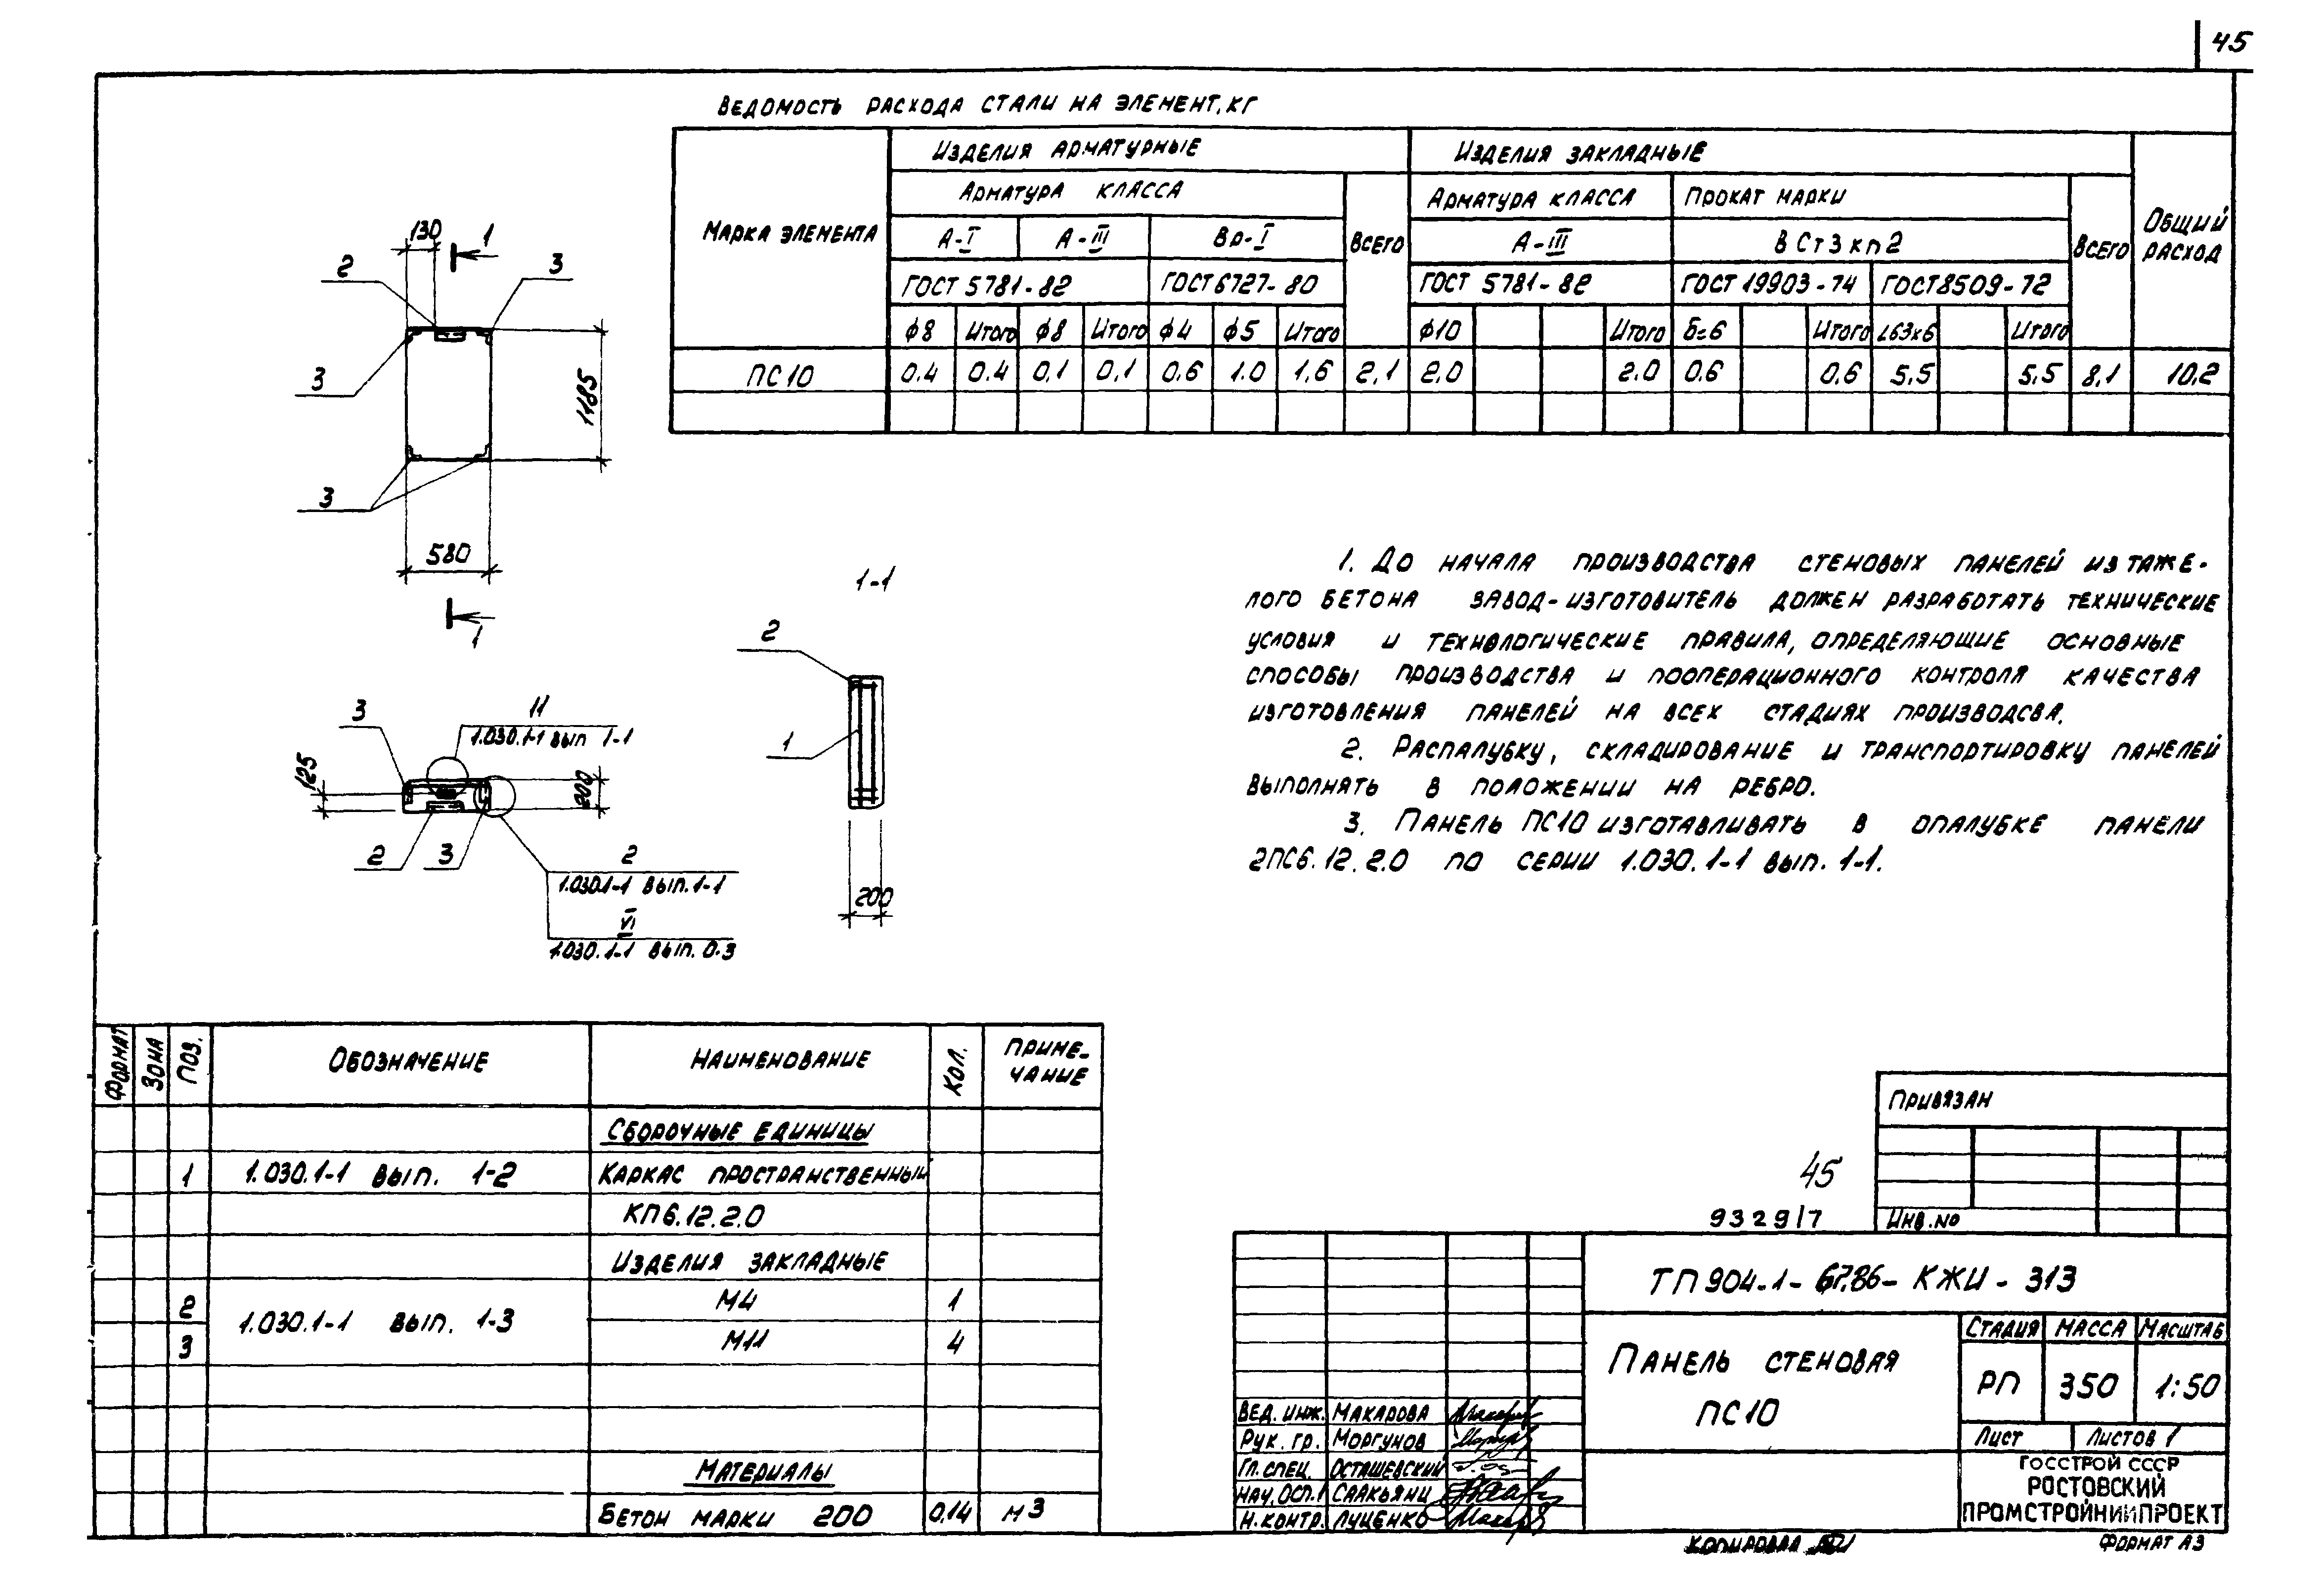 45
Ведомость расхода стали на элемент, кг
Марка элемента
Изделия арматурные
Изделия закладные
Общий расход
Арматура класса
Всего
Арматура класса
Прокат марки
Всего
А-I А-III Вр-I
А-III
ВСт3кп2
ГОСТ 5781-82 ГОСТ 6727-80
ГОСТ 5781-82 ГОСТ 19903-74 ГОСТ 8509-72
ф8 Итого ф8 Итого ф4 ф5 Итого ф10 Итого δ=6 Итого L63х6 Итого
ПС10 0.4 0.4 0,1 0,1 0,6 1.0 1,6 2,1 2,0 2.0 0,6 0,6 5,5 5,5 8,1 10,2
130
1
2
3
3
1185
3
580
1
1-1
2
1
200
3
11
1.030.1-1 вып 1-1
125
200
2
3
2
1.030.1-1 вып. 1-1
VI
1.030.1-1 вып. 0-3
1. До начала производства стеновых панелей из таже-
лого бетона завод-изготовитель должен разработать технические
условия и технологические правила, определяющие основные
способы производства и пооперационного контроля качества
изготовления панелей на всех стадиях производсва.
2. Распалубку, складирование и транспортировку панелей
выполнять в положении на ребро.
3. Панель ПС10 изготавливать в опалубке панели
2ПС6.12.2.0 по серии 1.030.1-1 вып. 1-1.
Формат Зона Поз. Обозначение Наименование Кол. Приме-
чание
Сборочные единицы
1 1.030.1-1 вып. 1-2 Каркас пространственный
КП6.12.2.0
Изделия закладные
2 М4 1
1.030.1-1 вып. 1-3
3 М11 4
Материалы
Бетон марки 200 0,14 м3
Привязан
Инв.No
45
9329/7
ТП 904-1-67.86-КЖИ-313
Панель стеновая
ПС10
Стадия Масса Масштаб
РП 350 1:50
Лист Листов 1
Госстрой СССР
РОСТОВСКИЙ
ПРОМСТРОЙНИИПРОЕКТ
Вед. инж. Макарова
Рук. гр. Моргунов
Гл. спец. Осташевский
Нач. осп.1 Саакьянц
Н. контр. Луценко
Копировал
Формат А3